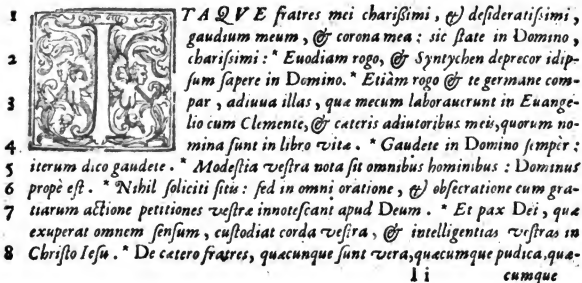 1 ITAQVE fratres mei charißimi, & desideratissimi,
gaudium meum, & corona mea: sic state in Domino,
2 charissimi: * Euodiam rogo, & Syntychen deprecor idip-
sum sapere in Domino. * Etiàm rogo & te germane com-
3 par, adiuua illas, quæ mecum laborauerunt in Euange-
lio cum Clemente, & cæteris adiutoribus meis, quorum no-
4 mina sunt in libro vitæ. * Gaudete in Domino semper:
5 iterum dico gaudete. * Modestia vestra nota sit omnibus hominibus: Dominus
6 propè est. * Nihil soliciti sitis: sed in omni oratione, & obsecratione cum gra-
7 tiarum actione petitiones vestræ innotescant apud Deum. * Et pax Dei, quæ
exuperat omnem sensum, custodiat corda vestra, & intelligentias vestras in
8 Christo Iesu. * De cætero fratres, quæcunque sunt vera, quæcumque pudica, quæ-
l i cumque